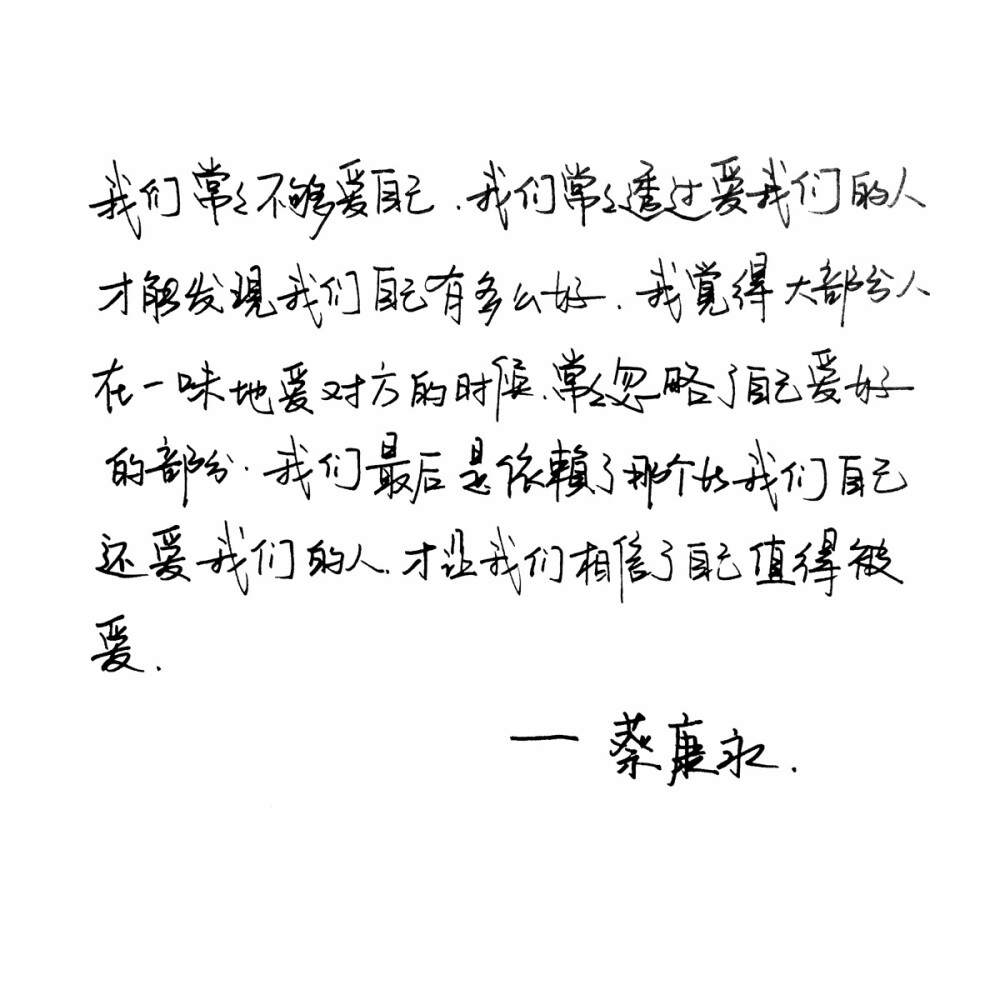 我们常々不够爱自己.我们常々透过爱我们的人
才能发現我们自己有多么好.我覚得大部分人
在一味地爱对方的时候.常々忽略了自己爱好
的部分.我们最后是依賴了那个比我们自己
还爱我们的人.才让我们相信了自己值得被
爱.
— 蔡康永.